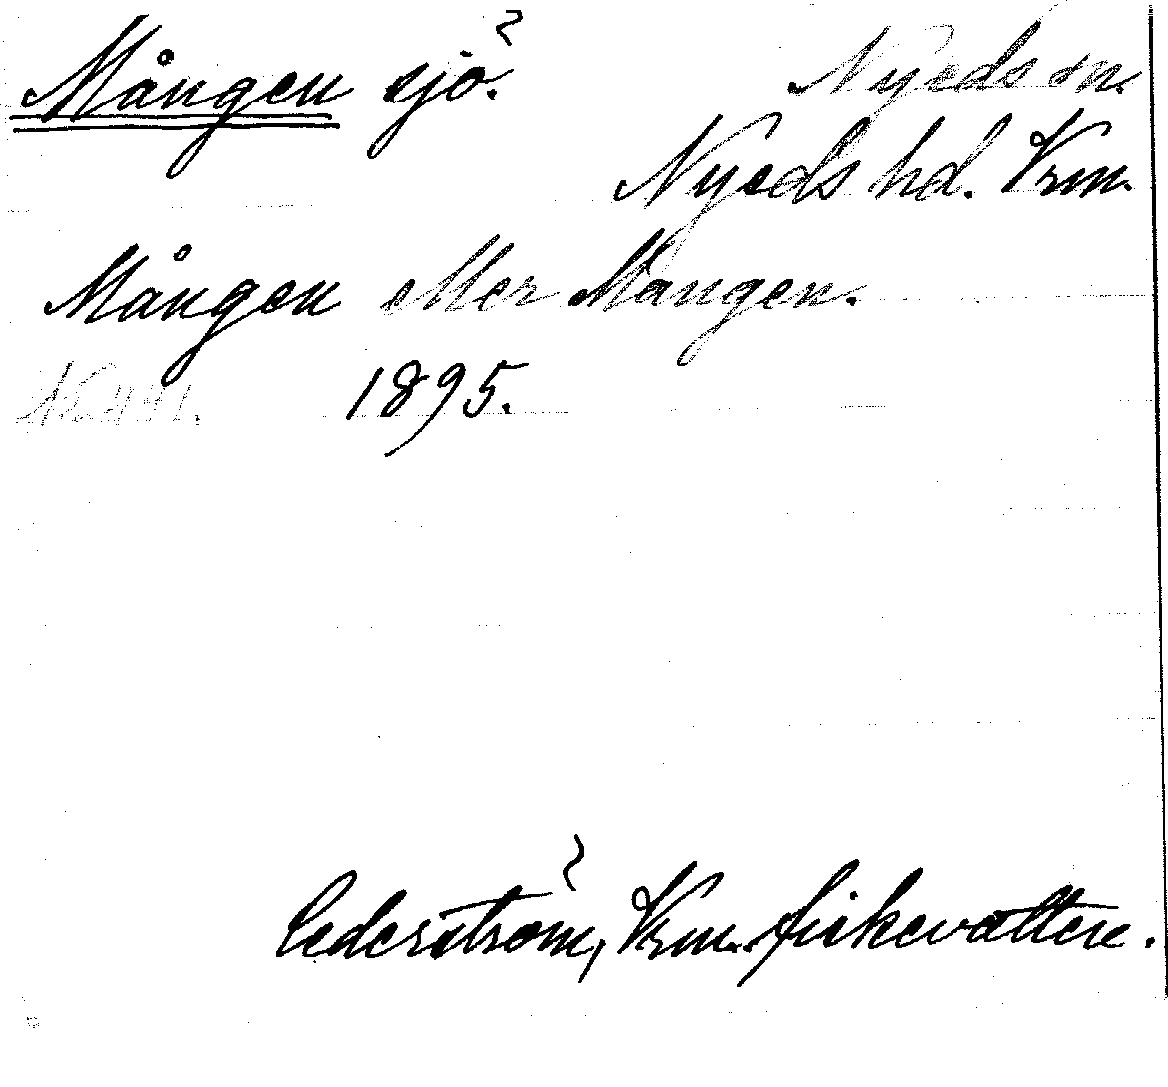 Mången sjö. Nyeds sn.
Nyeds hd. Vrm.
Mången eller Mangen.
No 441. 1895.
Cederström, Vrm. fiskevatten.